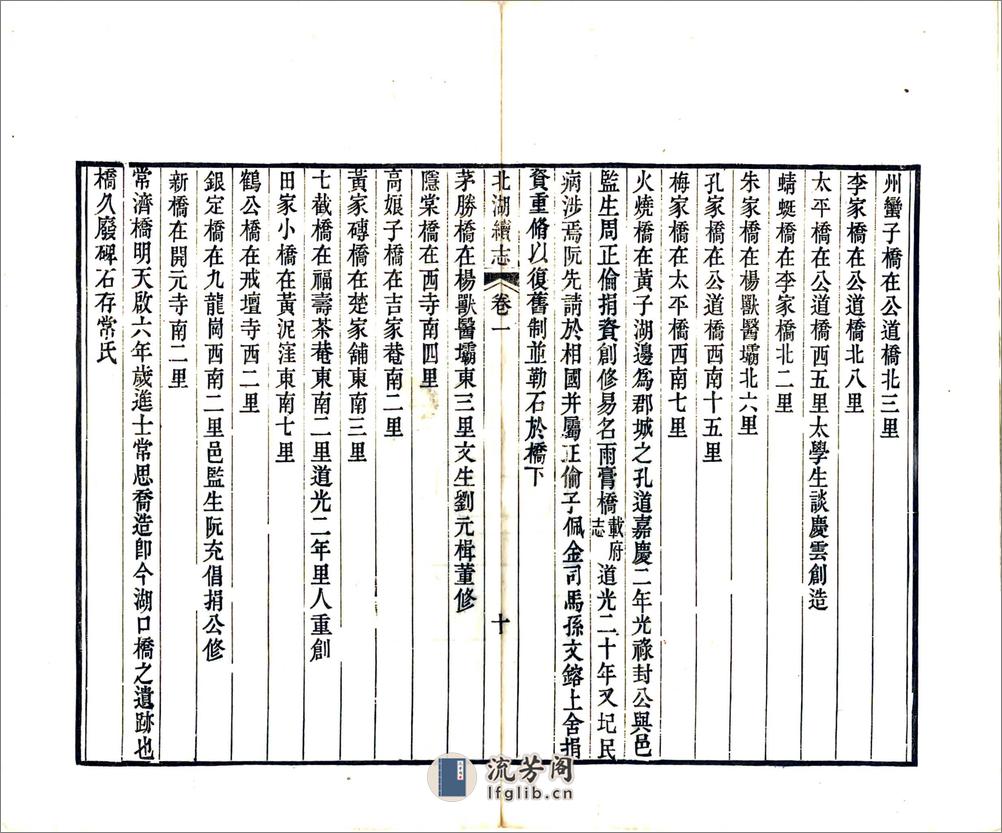 州蠻子橋在公道橋北三里
李家橋在公道橋北八里
太平橋在公道橋西五里太學生談慶雲創造
蜻蜓橋在李家橋北二里
朱家橋在楊獸醫壩北六里
孔家橋在公道橋西南十五里
梅家橋在太平橋西南七里
火燒橋在黃子湖邊爲郡城之孔道嘉慶二年光祿封公與邑
監生周正倫捐資創修易名雨膏橋載府志道光二十年又圮民
病涉焉阮先請於相國并屬正倫子佩金司馬孫文鎔上舍捐
資重脩以復舊制並勒石於橋下
北湖續志 卷一 十
茅勝橋在楊獸醫壩東三里文生劉元楫董修
隱棠橋在西寺南四里
高娘子橋在吉家菴南二里
黃家磚橋在楚家舖東南三里
七截橋在福壽茶菴東南二里道光二年里人重創
田家小橋在黃泥窪東南七里
鶴公橋在戒壇寺西二里
銀定橋在九龍岡西南二里邑監生阮充倡捐公修
新橋在開元寺南二里
常濟橋明天啟六年歲進士常思喬造卽今湖口橋之遺跡也
橋久廢碑石存常氏
流芳阁
lfglib.cn